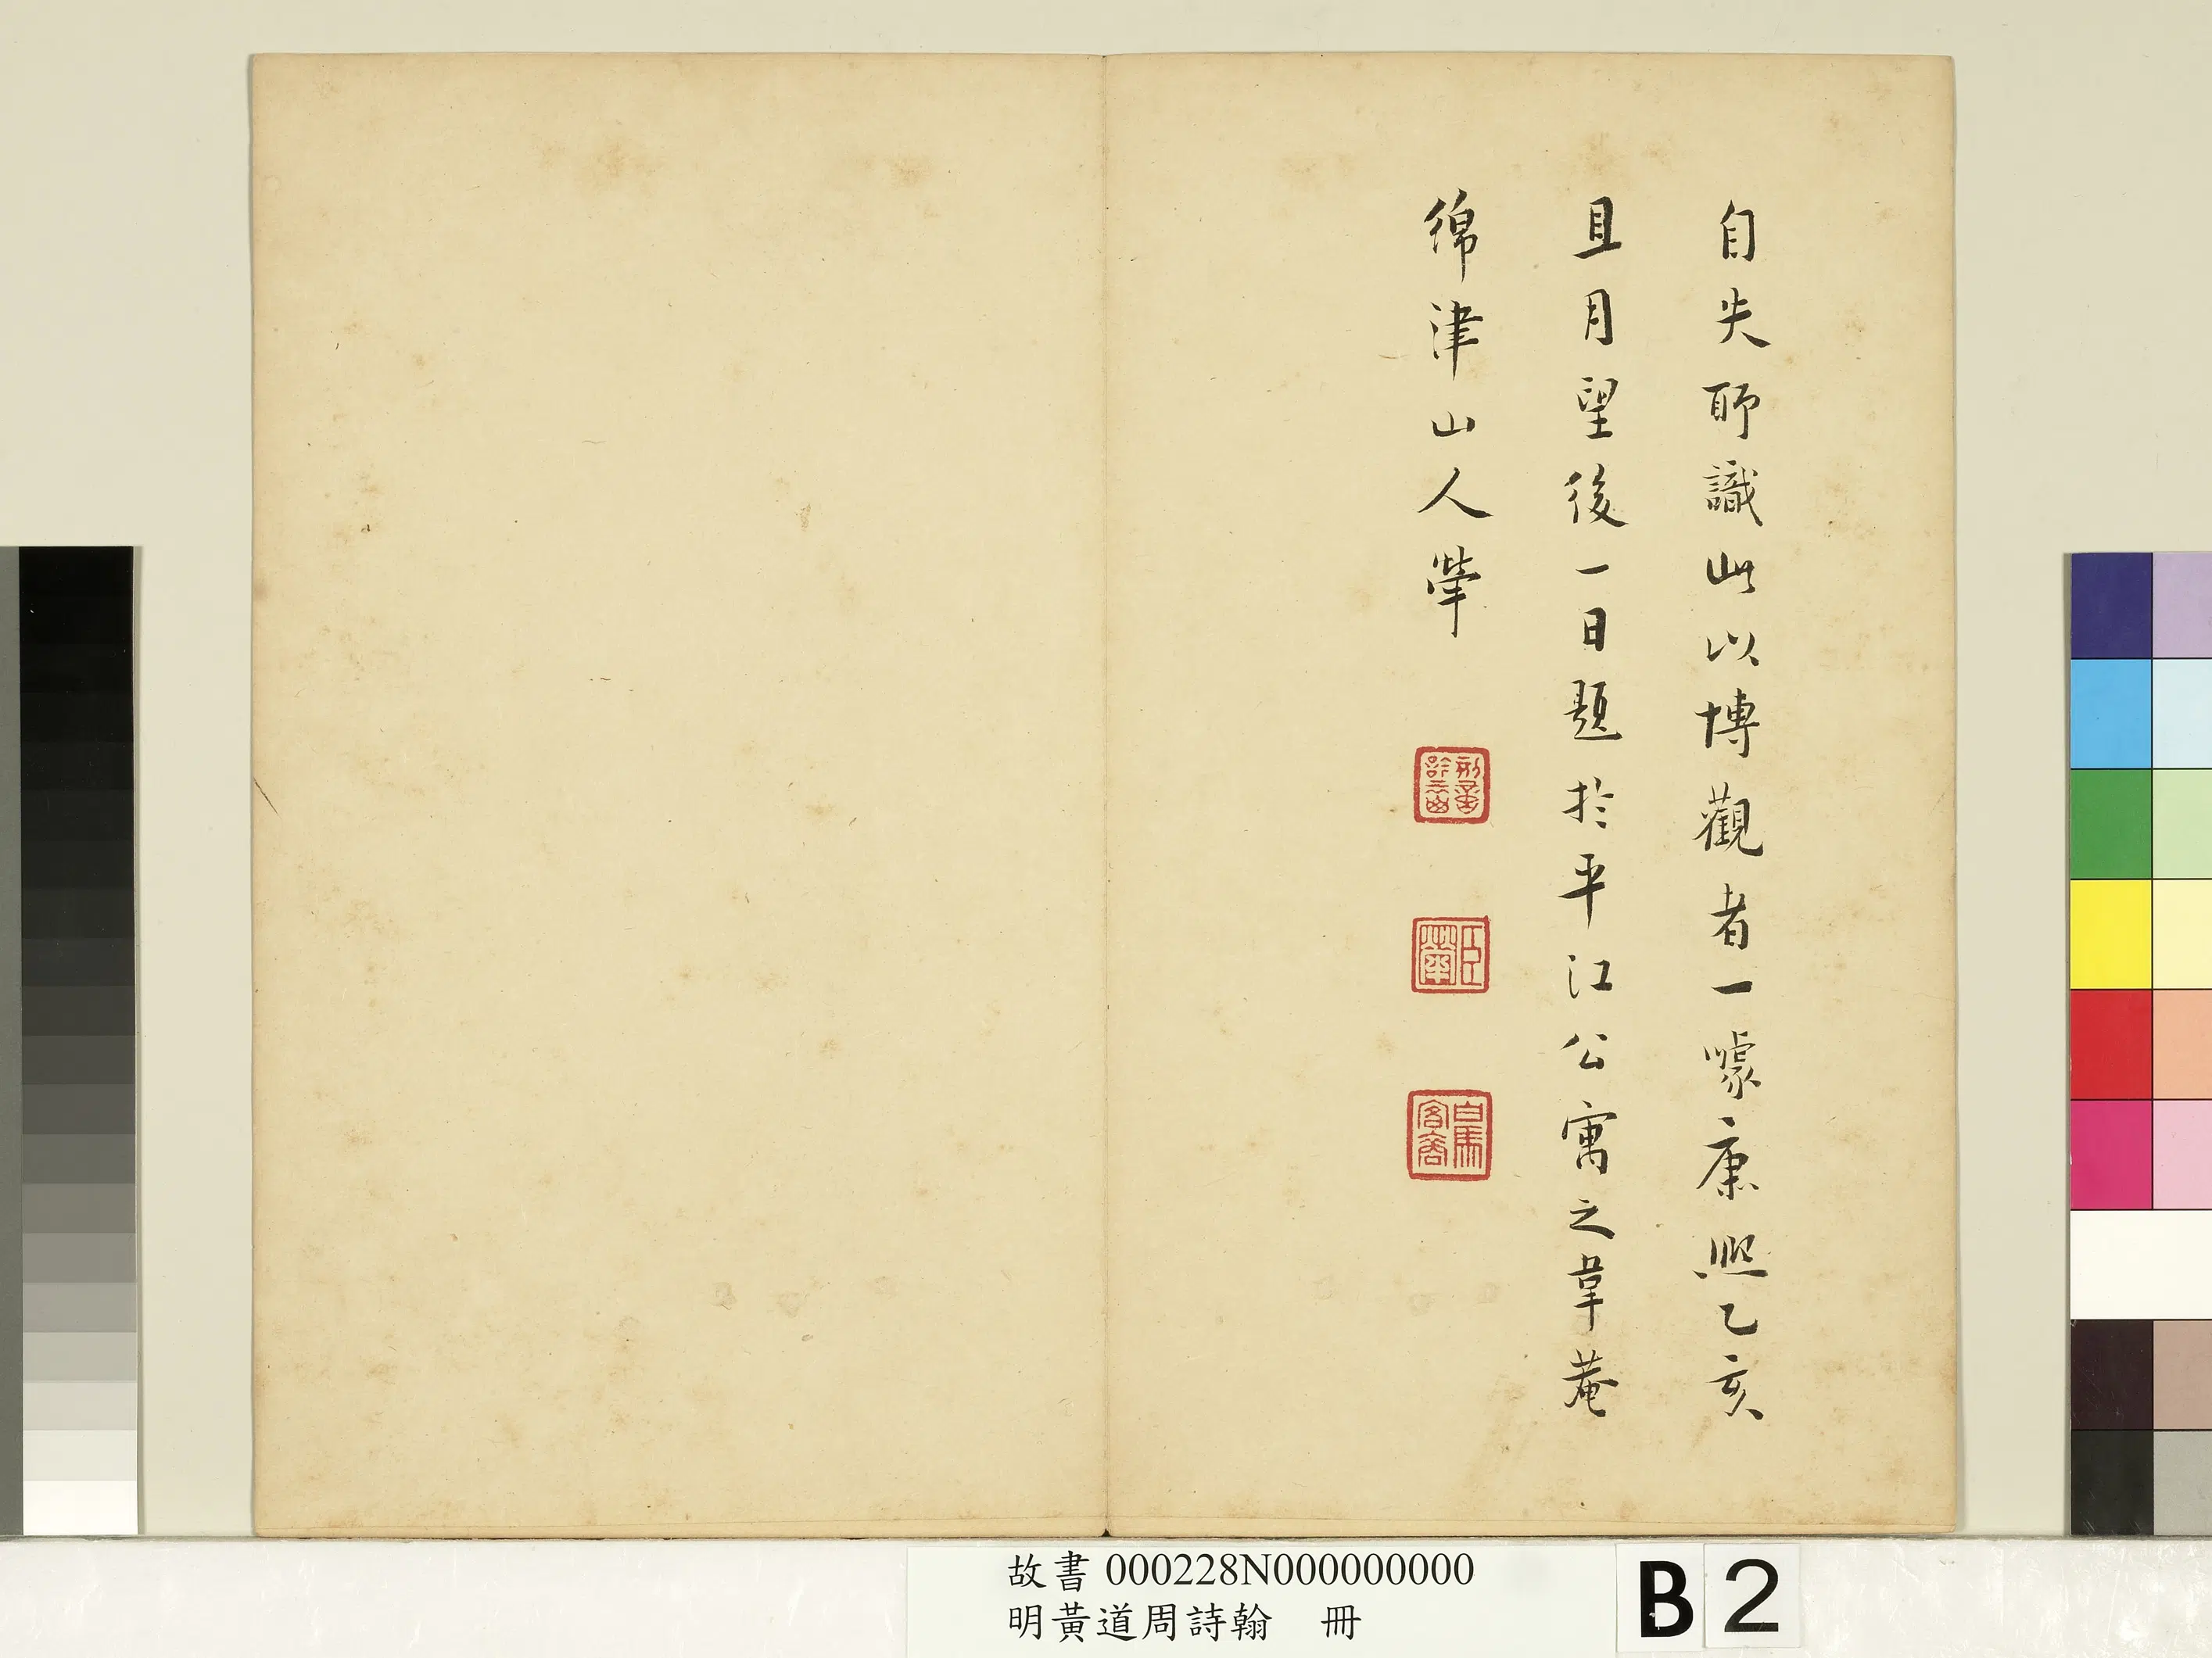 自失聊識此以博觀者一噱康熙乙亥
且月望後一日題於平江公寓之韋菴
綿津山人犖
臣犖
白馬客裔
故書 000228N000000000
明黃道周詩翰 冊
B2